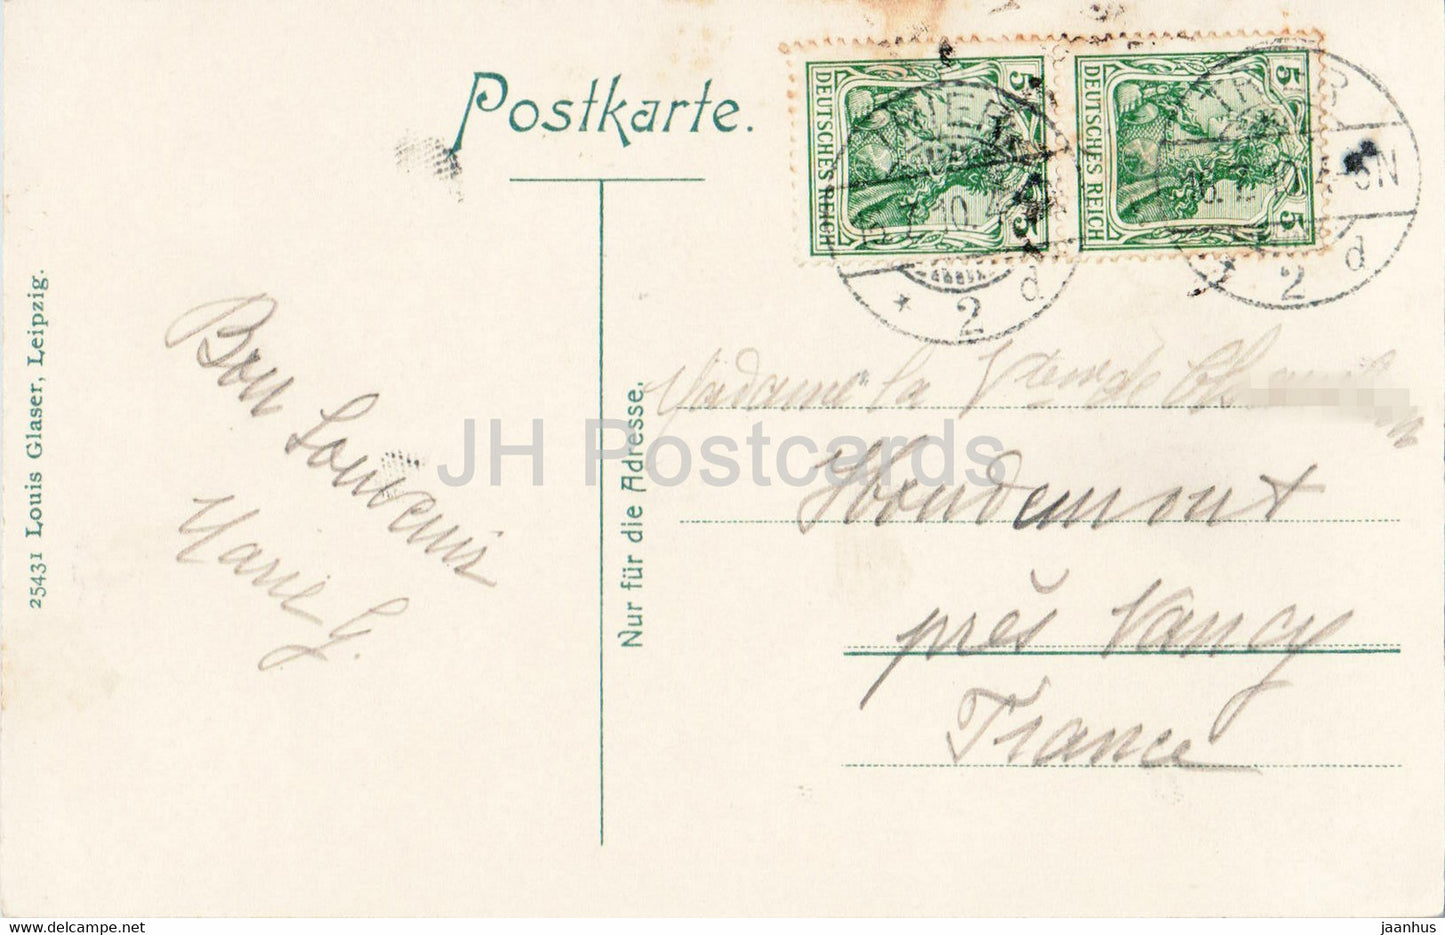 Postkarte.
DEUTSCHES REICH
5
5
DEUTSCHES REICH
5
5
TRIER
* 2 d
TRIER
* 2 d
25431 Louis Glaser, Leipzig.
Nur für die Adresse.
Bon Souvenir
Marie G.
Madame la Vtesse de
Houdemont
près Nancy
France
JH Postcards
www.delcampe.net
jaanhus